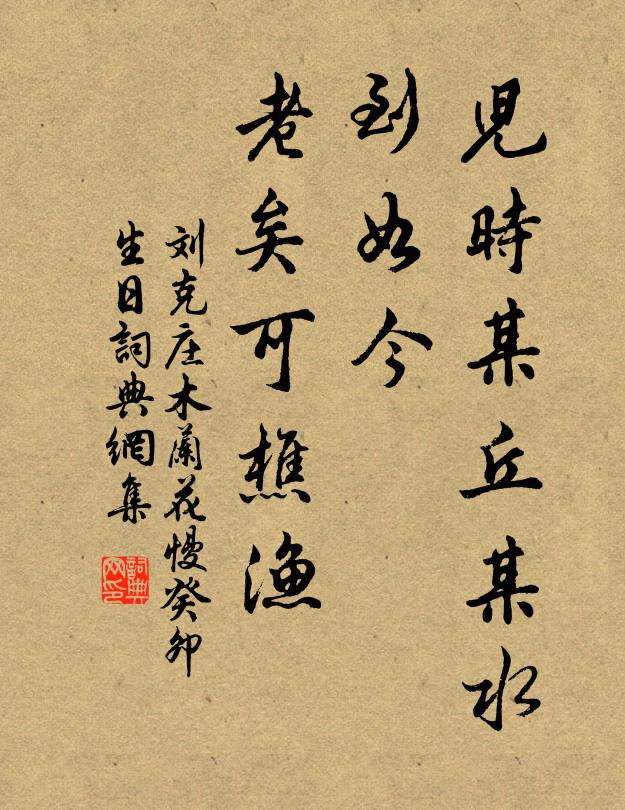 兒時某丘某水
到如今
老矣可樵漁
刘克庄木蘭花慢癸卯
生日詞典網集
詞典网印